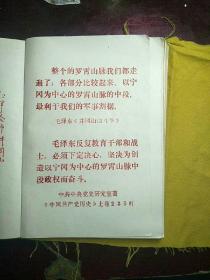 整个的罗霄山脉我们都走
遍了；各部分比较起来，以宁
冈为中心的罗霄山脉的中段，
最利于我们的军事割据。
毛泽东《井冈山的斗争》
毛泽东反复教育干部和战
士，必须下定决心，坚决为创
造以宁冈为中心的罗霄山脉中
段政权而奋斗。
中共中央党史研究室著
《中国共产党历史》上卷